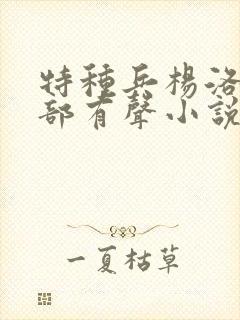 特種兵楊洛
部有聲小說
一夏枯草